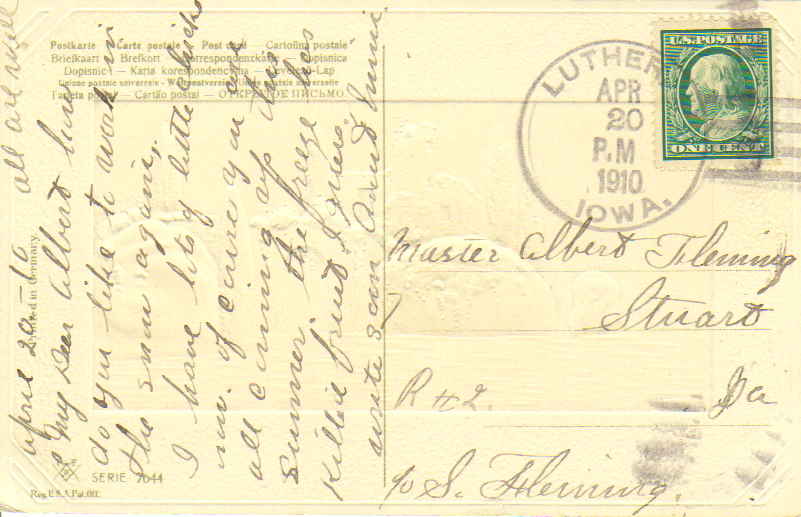 Postkarte — Carte postale — Post card — Cartolina postale
Briefkaart — Brefkort — Correspondenzkarte — Dopisnica
Dopisnici — Karta korespondencyjna — Levelező-Lap
Union postale universelle — Weltpostverein — Union postale universelle
Tarjeta postal — Cartão postal — ОТКРЫТОЕ ПИСЬМО.
LUTHER
APR
20
P.M
1910
IOWA.
U.S. POSTAGE
ONE CENT
all are well
April 20 - 10
My Dear Albert how
do you like to work in
the snow again,
I have lots of little chicks
now. of course you are
all coming up this
summer the freeze
killed fruit I guess.
write soon Aunt
Master Albert Fleming
Stuart
R #2. Ia
c/o S. Fleming.
Printed in Germany
SERIE 7044
Reg. U.S.A. Pat. Off.